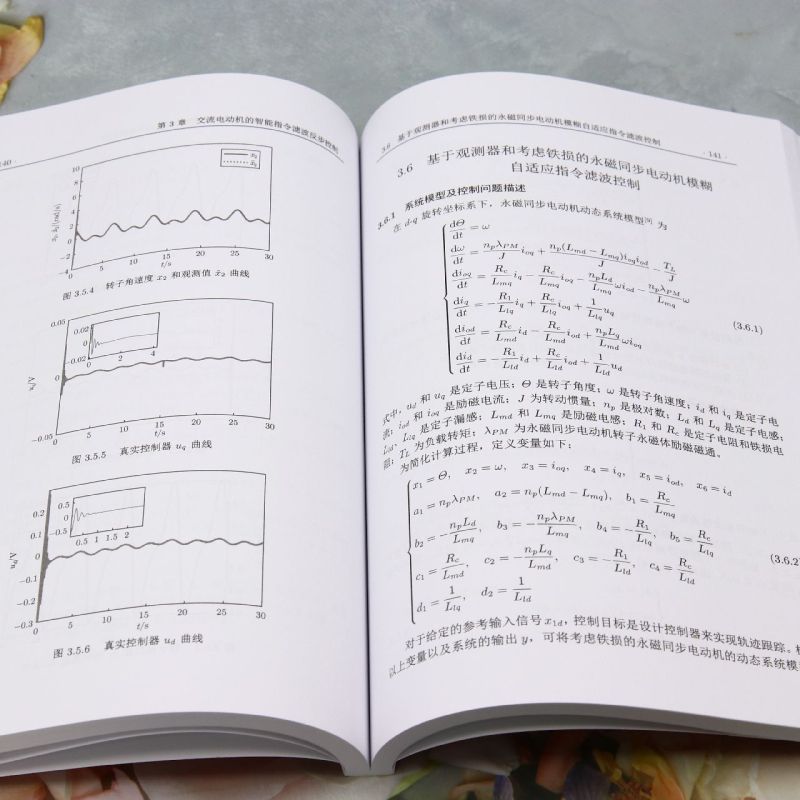 140 ·
第 3 章 交流电动机的智能指令滤波反步控制
10
8
6
4
2
0
−2
−4
0
5
10
15
20
25
30
t/s
图 3.5.4 转子角速度 x₂ 和观测值 x̂₂ 曲线
0.05
0
−0.05
0.02
0
−0.02
0
2
4
0
5
10
15
20
25
30
t/s
图 3.5.5 真实控制器 u_q 曲线
0.2
0.1
0
−0.1
−0.2
−0.3
0.5
0
−0.5
0.5 1 1.5 2
0
5
10
15
20
25
30
t/s
图 3.5.6 真实控制器 u_d 曲线
3.6 基于观测器和考虑铁损的永磁同步电动机模糊自适应指令滤波控制
· 141 ·
3.6 基于观测器和考虑铁损的永磁同步电动机模糊
自适应指令滤波控制
3.6.1 系统模型及控制问题描述
在 d-q 旋转坐标系下，永磁同步电动机动态系统模型[9] 为
dΘ/dt = ω
dω/dt = n_pλ_PM/J i_oq + n_p(L_md − L_mq)i_oq i_od/J − T_L/J
di_oq/dt = R_c/L_mq i_q − R_c/L_mq i_oq − n_pL_d/L_mq ωi_od − n_pλ_PM/L_mq ω
di_q/dt = −R_1/L_lq i_q + R_c/L_lq i_oq + 1/L_lq u_q
di_od/dt = R_c/L_md i_d − R_c/L_md i_od + n_pL_q/L_md ωi_oq
di_d/dt = −R_1/L_ld i_d + R_c/L_ld i_od + 1/L_ld u_d
(3.6.1)
式中，u_d 和 u_q 是定子电压；Θ 是转子角度；ω 是转子角速度；i_d 和 i_q 是定子电
流；i_od 和 i_oq 是励磁电流；J 为转动惯量；n_p 是极对数；L_d 和 L_q 是定子电感；
L_ld、L_lq 是定子漏感；L_md 和 L_mq 是励磁电感；R_1 和 R_c 是定子电阻和铁损电
阻；T_L 为负载转矩；λ_PM 为永磁同步电动机转子永磁体励磁磁通。
为简化计算过程，定义变量如下：
x₁ = Θ, x₂ = ω, x₃ = i_oq, x₄ = i_q, x₅ = i_od, x₆ = i_d
a₁ = n_pλ_PM, a₂ = n_p(L_md − L_mq), b₁ = R_c/L_mq
b₂ = −n_pL_d/L_mq, b₃ = −n_pλ_PM/L_mq, b₄ = −R_1/L_lq, b₅ = R_c/L_lq
c₁ = R_c/L_md, c₂ = −n_pL_q/L_md, c₃ = −R_1/L_ld, c₄ = R_c/L_ld
d₁ = 1/L_lq, d₂ = 1/L_ld
(3.6.2)
对于给定的参考输入信号 x₁d，控制目标是设计控制器来实现轨迹跟踪。
以上变量以及系统的输出 y，可将考虑铁损的永磁同步电动机的动态系统模